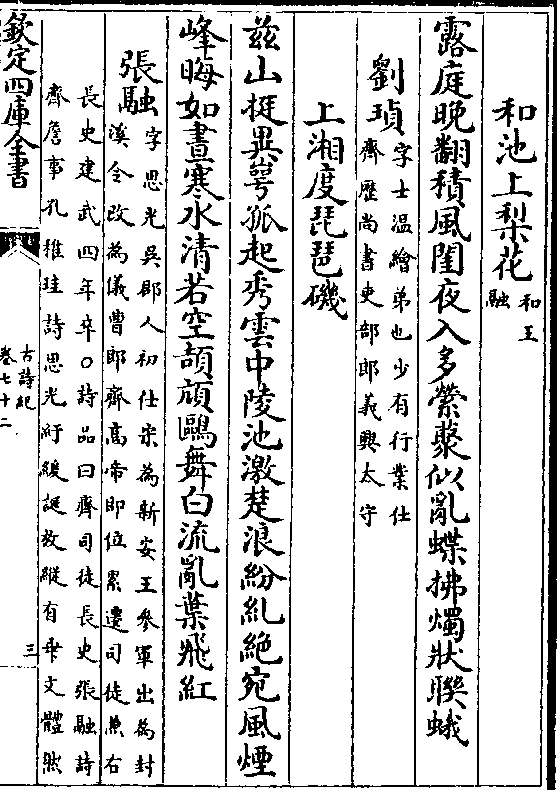 和池上梨花和王融
露庭晩翻積風閨夜入多縈藂似亂蝶拂燭狀聨蛾
劉瑱字士温繪弟也少有行業仕齊歷尚書吏部郎義興太守
上湘度琵琶磯
兹山挺異崿孤起秀雲中陵池激楚浪紛糺絶宛風煙
峰晦如晝寒水清若空頡頏鷗舞白流亂葉飛紅
張融字思光吳郡人初仕宋為新安王參軍出為封
溪令改為儀曹郎齊高帝即位累遷司徒兼右
長史建武四年卒○詩品曰齊司徒長史張融詩
齊詹事孔稚珪詩思光紆緩誕放縱有乖文體然
欽定四庫全書
古詩紀
卷七十二
三